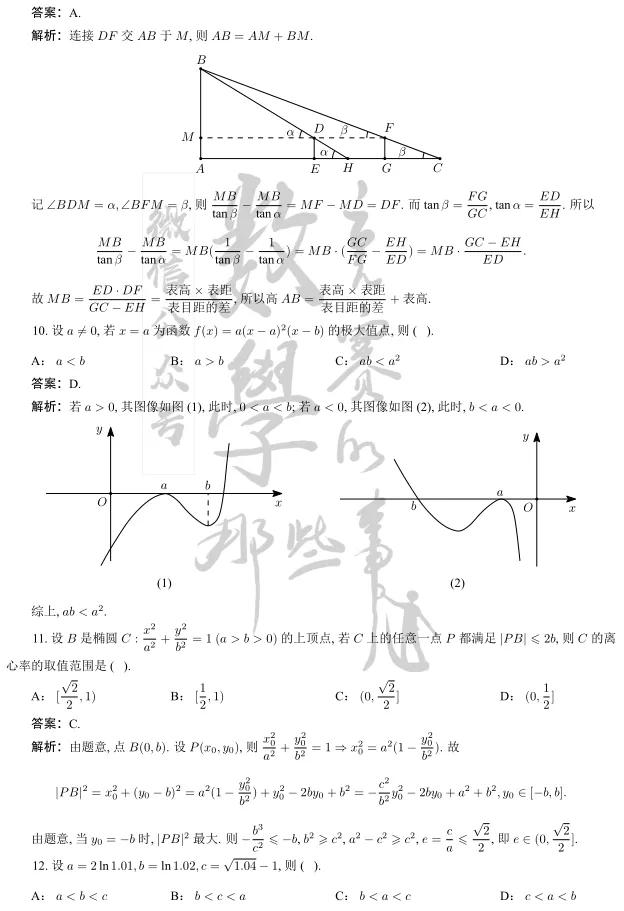 答案：A.
解析：连接 DF 交 AB 于 M, 则 AB = AM + BM.
B
M α D β F
A E α H G β C
记 ∠BDM = α, ∠BFM = β, 则 MB/tan β − MB/tan α = MF − MD = DF. 而 tan β = FG/GC, tan α = ED/EH. 所以
MB/tan β − MB/tan α = MB(1/tan β − 1/tan α) = MB · (GC/FG − EH/ED) = MB · (GC − EH)/ED.
故 MB = (ED · DF)/(GC − EH) = (表高 × 表距)/表目距的差, 所以高 AB = (表高 × 表距)/表目距的差 + 表高.
10. 设 a ≠ 0, 若 x = a 为函数 f(x) = a(x − a)²(x − b) 的极大值点, 则 ( ).
A： a < b B： a > b C： ab < a² D： ab > a²
答案：D.
解析：若 a > 0, 其图像如图 (1), 此时, 0 < a < b; 若 a < 0, 其图像如图 (2), 此时, b < a < 0.
y a b O x
y b a O x
(1) (2)
综上, ab < a².
11. 设 B 是椭圆 C : x²/a² + y²/b² = 1 (a > b > 0) 的上顶点, 若 C 上的任意一点 P 都满足 |PB| ⩽ 2b, 则 C 的离
心率的取值范围是 ( ).
A： [√2/2, 1) B： [1/2, 1) C： (0, √2/2] D： (0, 1/2]
答案：C.
解析：由题意, 点 B(0, b). 设 P(x₀, y₀), 则 x₀²/a² + y₀²/b² = 1 ⇒ x₀² = a²(1 − y₀²/b²). 故
|PB|² = x₀² + (y₀ − b)² = a²(1 − y₀²/b²) + y₀² − 2by₀ + b² = −c²/b² y₀² − 2by₀ + a² + b², y₀ ∈ [−b, b].
由题意, 当 y₀ = −b 时, |PB|² 最大. 则 −b³/c² ⩽ −b, b² ⩾ c², a² − c² ⩾ c², e = c/a ⩽ √2/2, 即 e ∈ (0, √2/2].
12. 设 a = 2 ln 1.01, b = ln 1.02, c = √1.04 − 1, 则 ( ).
A： a < b < c B： b < c < a C： b < a < c D： c < a < b
微信公众号
数学竞赛的那些事